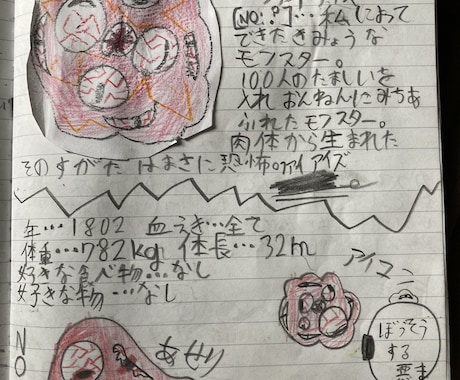 [NO.?]…私によって
できたきみょうな
モンスター。
100人のたましいを
入れおんねんにみちあ
ふれたモンスター。
肉体から生まれた
そのすがたはまさに恐怖。アイアイズ
年…1802 血えき…全て
体重…782kg 体長…32m
好きな食べ物…なし
好きな物…なし
アイマニ
あせり
NO
ぼうそう
する
悪ま